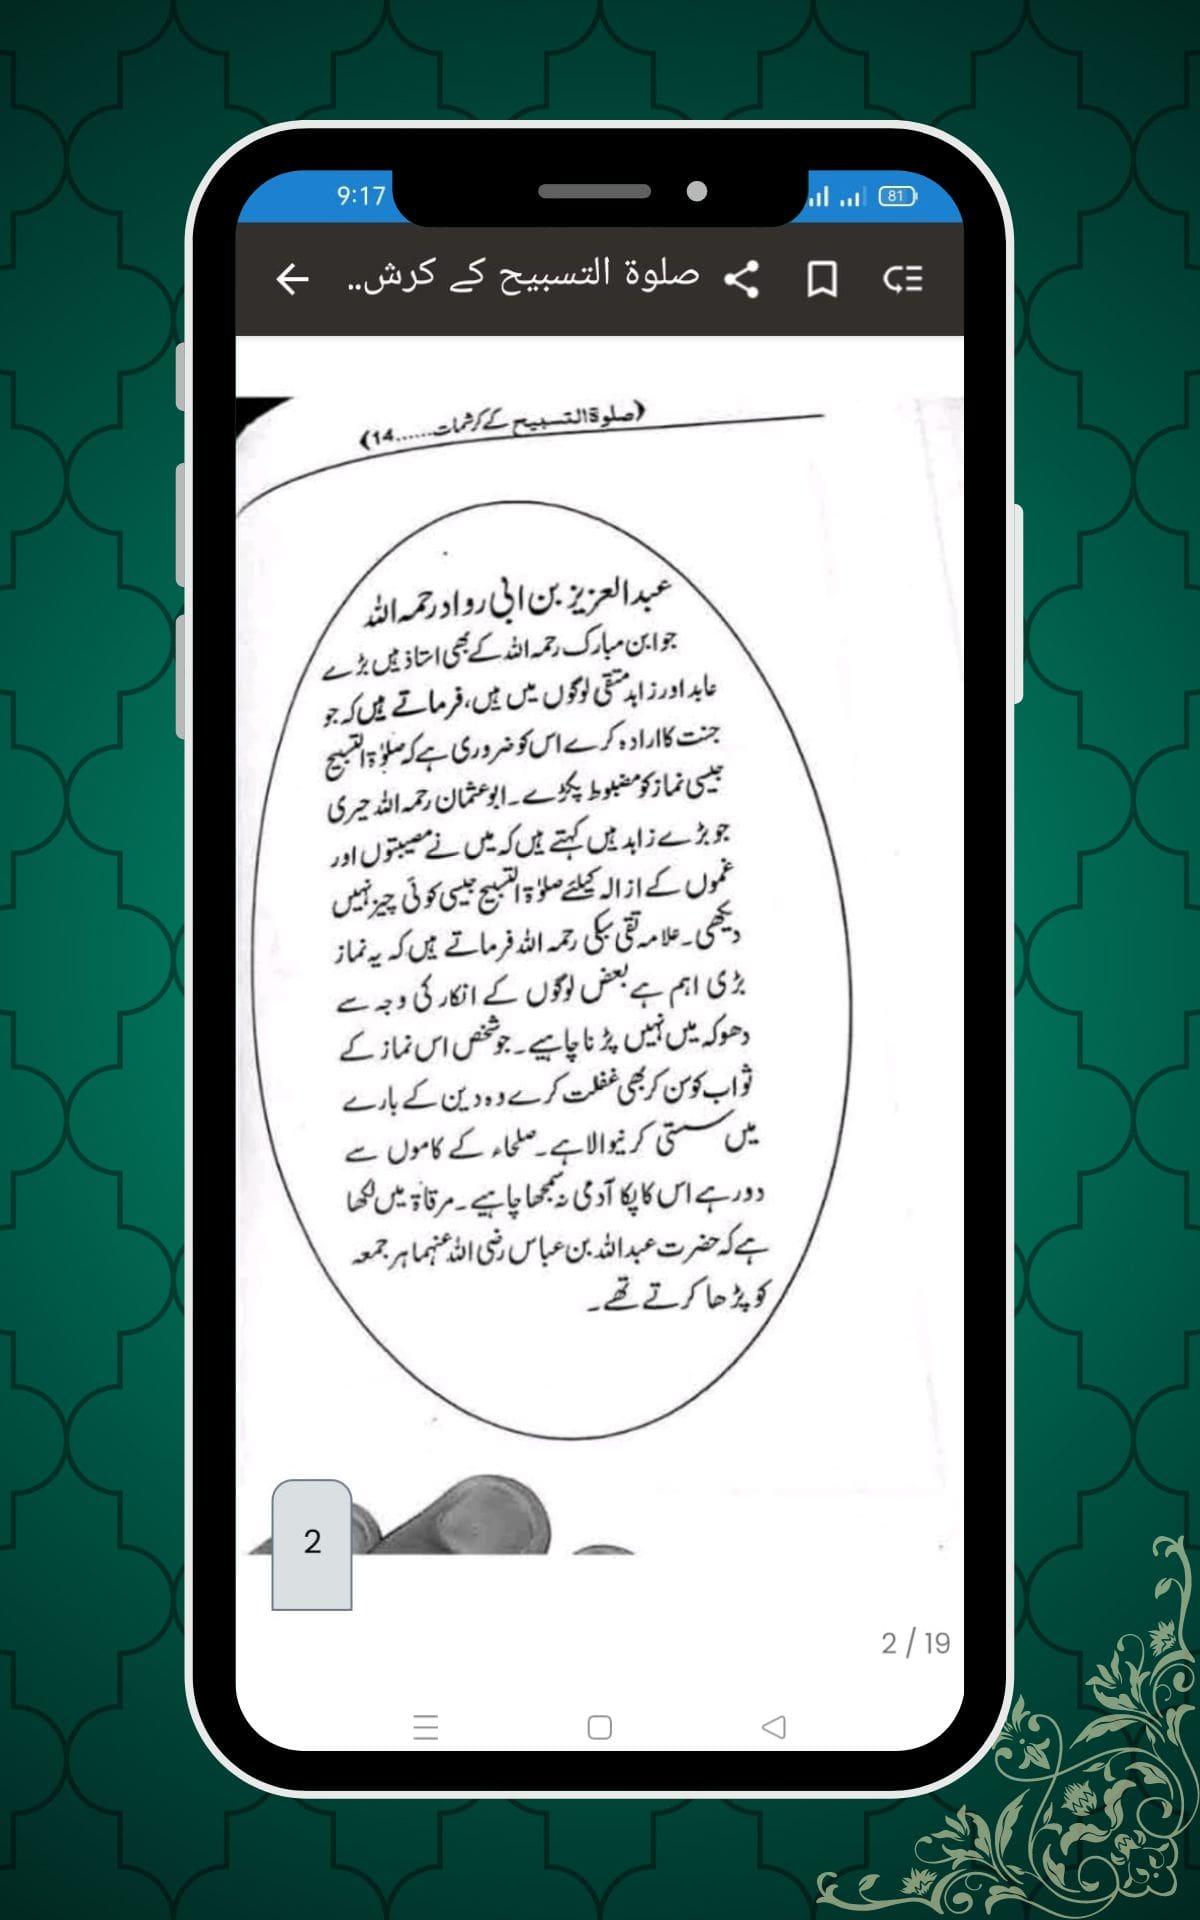 9:17
81
صلوة التسبيح کے کرش..
(صلوة التسبیح کے کرشمات......14)
عبدالعزیز بن ابی رواد رحمہ اللہ
جو ابن مبارک رحمہ اللہ کے بھی استاذ ہیں بڑے
عابد اور زاہد متقی لوگوں میں ہیں، فرماتے ہیں کہ جو
جنت کا ارادہ کرے اس کو ضروری ہے کہ صلوٰۃ التسبیح
جیسی نماز کو مضبوط پکڑے۔ ابو عثمان رحمہ اللہ حیری
جو بڑے زاہد ہیں کہتے ہیں کہ میں نے مصیبتوں اور
غموں کے ازالہ کیلئے صلوٰۃ التسبیح جیسی کوئی چیز نہیں
دیکھی۔ علامہ تقی سبکی رحمہ اللہ فرماتے ہیں کہ یہ نماز
بڑی اہم ہے بعض لوگوں کے انکار کی وجہ سے
دھوکہ میں نہیں پڑنا چاہیے۔ جو شخص اس نماز کے
ثواب کو سن کر بھی غفلت کرے وہ دین کے بارے
میں سستی کرنیوالا ہے۔ صلحاء کے کاموں سے
دور ہے اس کا پکا آدمی نہ سمجھا چاہیے۔ مرقاۃ میں لکھا
ہے کہ حضرت عبداللہ بن عباس رضی اللہ عنہما ہر جمعہ
کو پڑھا کرتے تھے۔
2
2 / 19